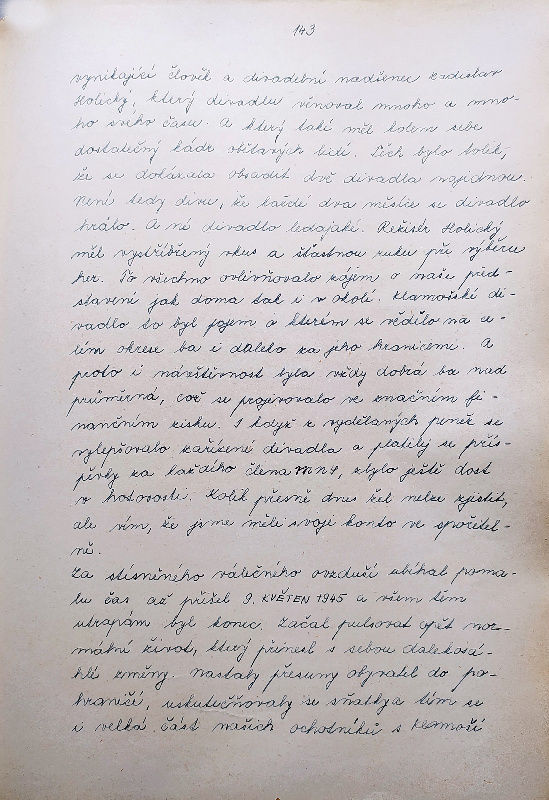 143
vynikající člověk a divadelní nadšenec Ladislav
Holický, který divadlu věnoval mnoho a mno-
ho svého času. A který také měl kolem sebe
dostatečný kádr obětavých lidí. Těch bylo tolik,
že se dokázala obsadit dvě divadla najednou.
Není tedy divu, že každé dva měsíce se divadlo
hrálo. A ne divadlo ledajaké. Režisér Holický
měl vystříbřený vkus a šťastnou ruku při výběru
her. To všechno ovlivňovalo zájem o naše před-
stavení jak doma tak i v okolí. Klamošské di-
vadlo to byl pojem o kterém se vědělo na ce-
lém okrese ba i daleko za jeho hranicemi. A
proto i návštěvnost byla vždy dobrá ba nad
průměrná, což se projevovalo ve značném fi-
nančním zisku. I když z vydělaných peněz se
vylepšovalo zařízení divadla a platily se přís-
pěvky za každého člena, zbylo ještě dost
v hotovosti. Kolik přesně dnes žel nelze zjistit,
ale vím, že jsme měli svoje konto ve spořitel-
ně.
Za stísněného válečného ovzduší ubíhal poma-
lu čas až přišel 9. KVĚTEN 1945 a všem těm
útrapám byl konec. Začal pulsovat opět nor-
mální život, který přinesl s sebou dalekosá-
hlé změny. Nastaly přesuny obyvatel do po-
hraničí, uskutečňovaly se sňatky a tím se
i velká část našich ochotníků s Klamoší